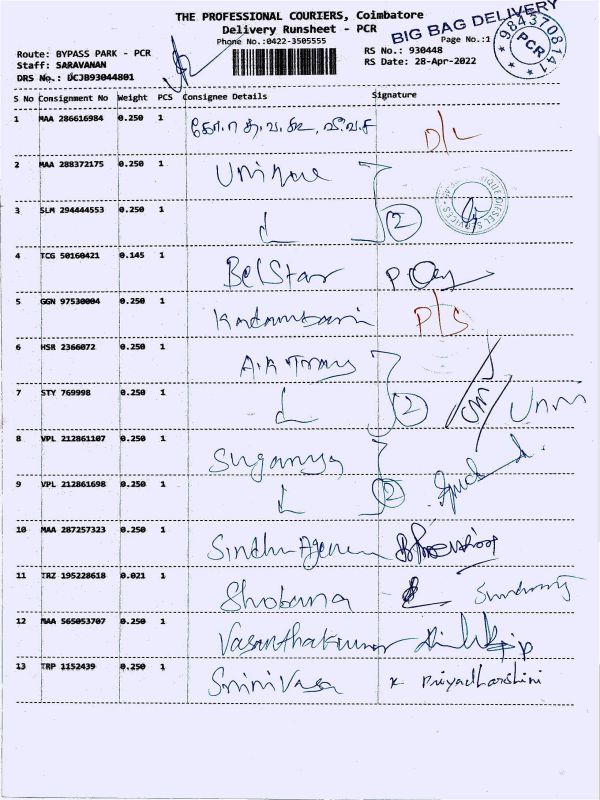 THE PROFESSIONAL COURIERS, Coimbatore
Delivery Runsheet - PCR
BIG BAG DELIVERY
Phone No.:0422-3505555 Page No.:1
9843708141
PCR
Route: BYPASS PARK - PCR RS No.: 930448
Staff: SARAVANAN RS Date: 28-Apr-2022
DRS No.: DCJB93044801
S No Consignment No Weight PCS Consignee Details Signature
1 MAA 286616984 0.250 1 கோ.ஈ.த.வ.சு, வீ.வ.ச D/L
2 MAA 288372175 0.250 1 Unique
3 SLM 294444553 0.250 1 2
4 TCG 50160421 0.145 1 BelStar
5 GGN 97530004 0.250 1 Kadambari P/S
6 HSR 2366072 0.250 1 A.K Trans
7 STY 769998 0.250 1 2 Unni
8 VPL 212861107 0.250 1 Suganya
9 VPL 212861698 0.250 1 2
10 MAA 287257323 0.250 1 Sindhu
11 TRZ 195228618 0.021 1 Shobana
12 MAA 565053707 0.250 1 Vasanthakumar
13 TRP 1152439 0.250 1 Srinivasa x Priyadharshini